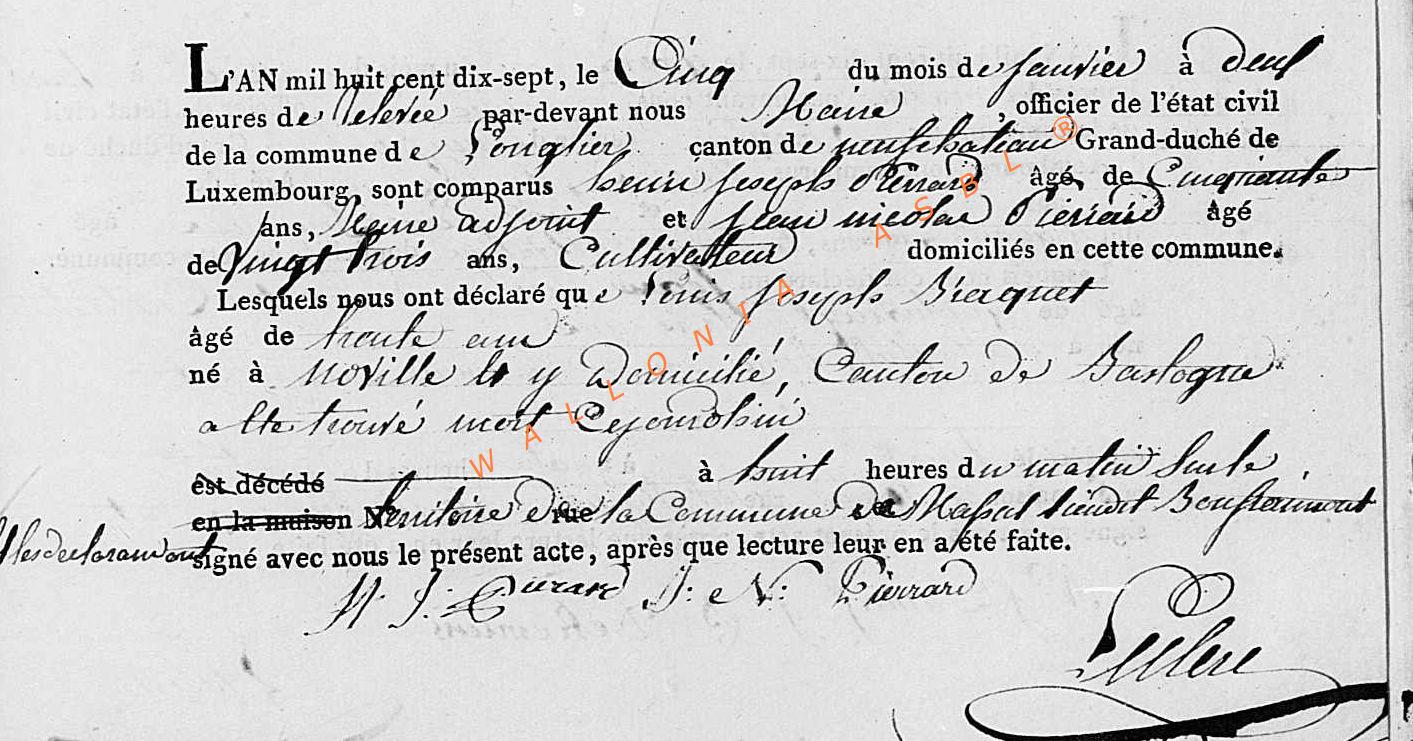 L'AN mil huit cent dix-sept, le Cinq du mois de Janvier à deux
heures de relevée par-devant nous Maire, officier de l'état civil
de la commune de Longlier canton de neufchateau Grand-duché de
Luxembourg, sont comparus henri Joseph Pierrard âgé de Cinquante
ans, Maire adjoint et Jean nicolas Pierrard âgé
de Vingt trois ans, Cultivateur domiciliés en cette commune.
Lesquels nous ont déclaré que Louis Joseph Bracquet
âgé de trente ans
né à Noville y Domicilié, Canton de Bastogne
a ete trouvé mort Cejourdhui
est décédé à huit heures du matin sur le
en la maison N rue territoire de la Commune de Massul lieudit
et les declarans ont
signé avec nous le présent acte, après que lecture leur en a été faite.
H. J. Pierard J: N: Pierrard
Leclere
WALLONIA ASBL ®